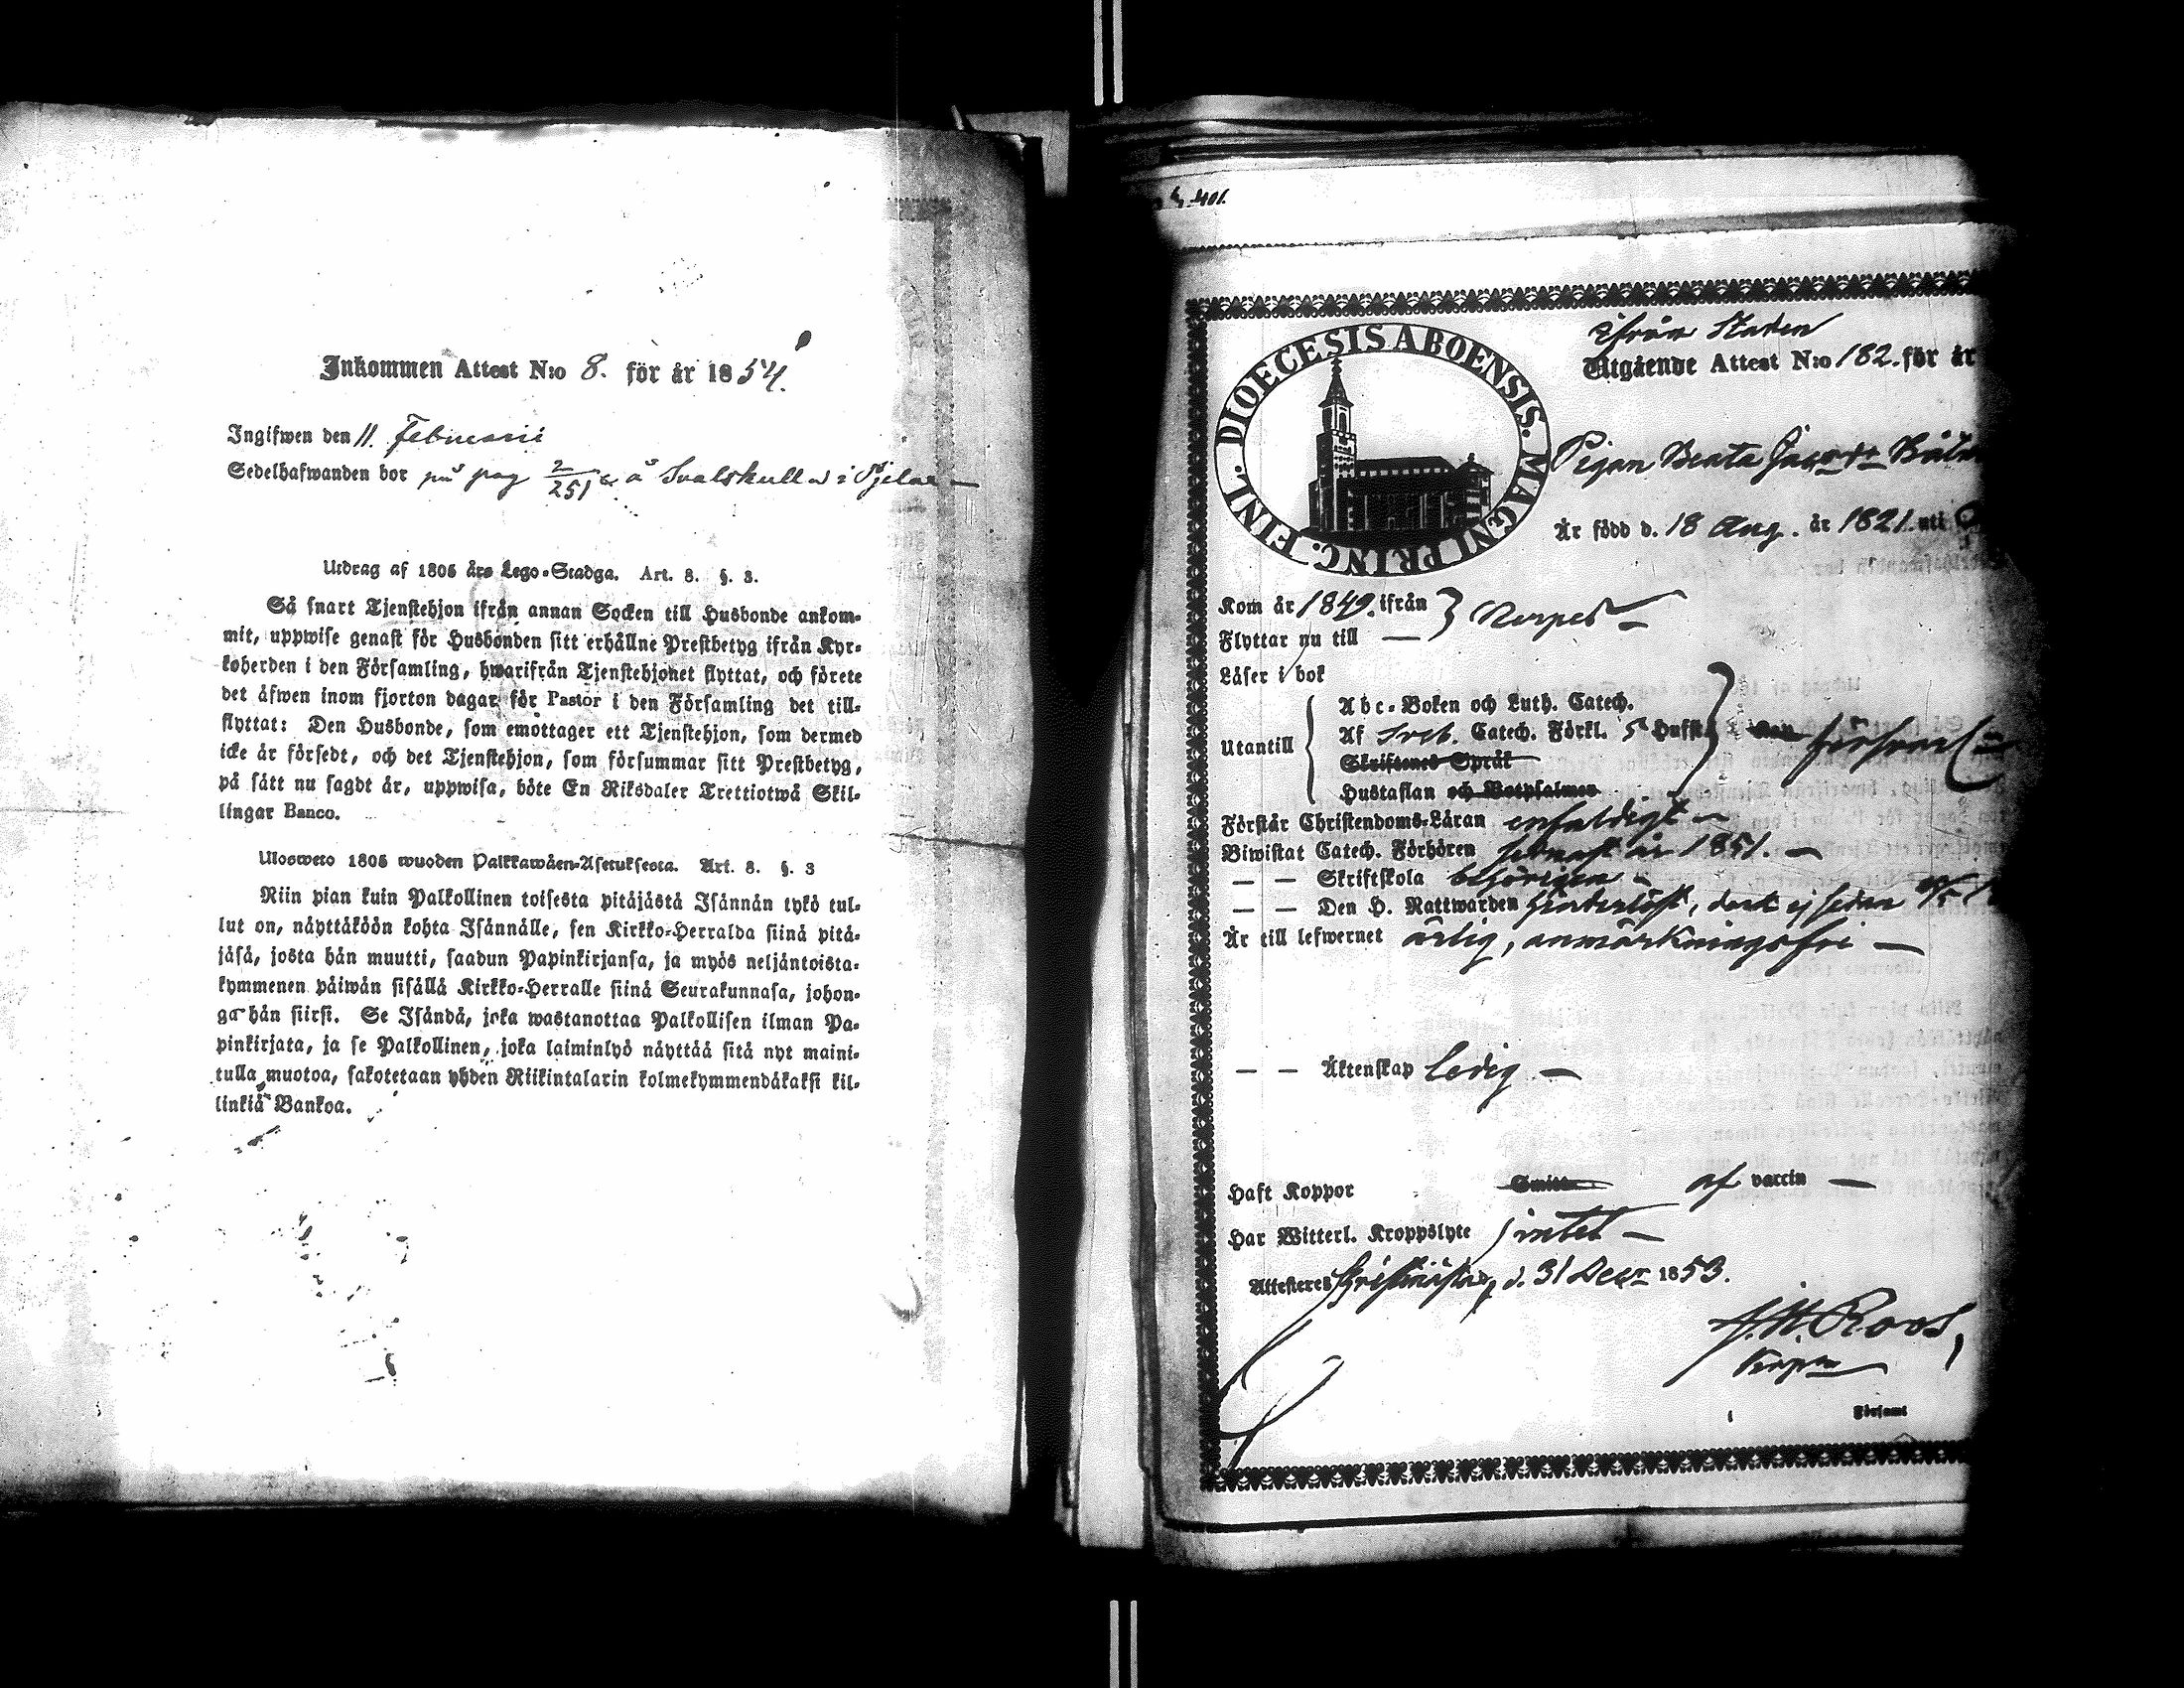 Inkommen Attest N:o 8. för år 1854.
Ingifwen den 11. Februarii
Sedelhafwanden bor på pag 2/251 å i
Utdrag af 1805 års Lego-Stadga. Art. 8. §. 3.
Så snart Tjenstehjon ifrån annan Socken till Husbonde ankom-
mit, uppwise genast för Husbonden sitt erhållne Prestbetyg ifrån Kyr-
koherden i den Församling, hwarifrån Tjenstehjonet flyttat, och förete
det äfwen inom fjorton dagar för Pastor i den Församling det till-
flyttat: Den Husbonde, som emottager ett Tjenstehjon, som dermed
icke är försedt, och det Tjenstehjon, som försummar sitt Prestbetyg,
på sätt nu sagdt är, uppwisa, böte En Riksdaler Trettiotwå Skil-
lingar Banco.
Ulosweto 1805 wuoden Palkkawäen-Asetuksesta. Art. 8. §. 3
Niin pian kuin Palkollinen toisesta pitäjästä Isännän tykö tul-
lut on, näyttäköön kohta Isännälle, sen Kirkko-Herralda siinä pitä-
jäsä, josta hän muutti, saadun Papinkirjansa, ja myös neljäntoista-
kymmenen päiwän sisällä Kirkko-Herralle siinä Seurakunnasa, johon-
ga hän siirsi. Se Isändä, joka wastanottaa Palkollisen ilman Pa-
pinkirjata, ja se Palkollinen, joka laiminlyö näyttää sitä nyt maini-
tulla muotoa, sakotetaan yhden Riikintalarin kolmekymmendäkaksi kil-
linkiä Bankoa.
401.
ifrån Staden
Utgående Attest N:o 182. för år
DIOECESIS ABOENSIS. MAGNI PRINC. FINL.
Pigan Beata
Är född d. 18 Aug. år 1821. uti
Kom år 1849. ifrån } Nerpes
Flyttar nu till —
Läser i bok
Abc-Boken och Luth. Catech.
Utantill Af Sveb. Catech. Förkl. 5 Hufst. försvarl.
Skriftenes Språk
Hustaflan och Botpsalmer
Förstår Christendoms-Läran enfaldigt —
Biwistat Catech. Förhören senast år 1851. —
— — Skriftskola behörigen —
— — Den H. Nattwarden hinderlöst, dock ej sedan
Är till lefwernet ärlig, anmärkningsfri —
— — Äktenskap ledig —
Haft Koppor Smitt af vaccin —
Har Witterl. Kroppslyte intet —
Attesteres Christinestad, d. 31 Decr 1853.
Roos,
i Församl